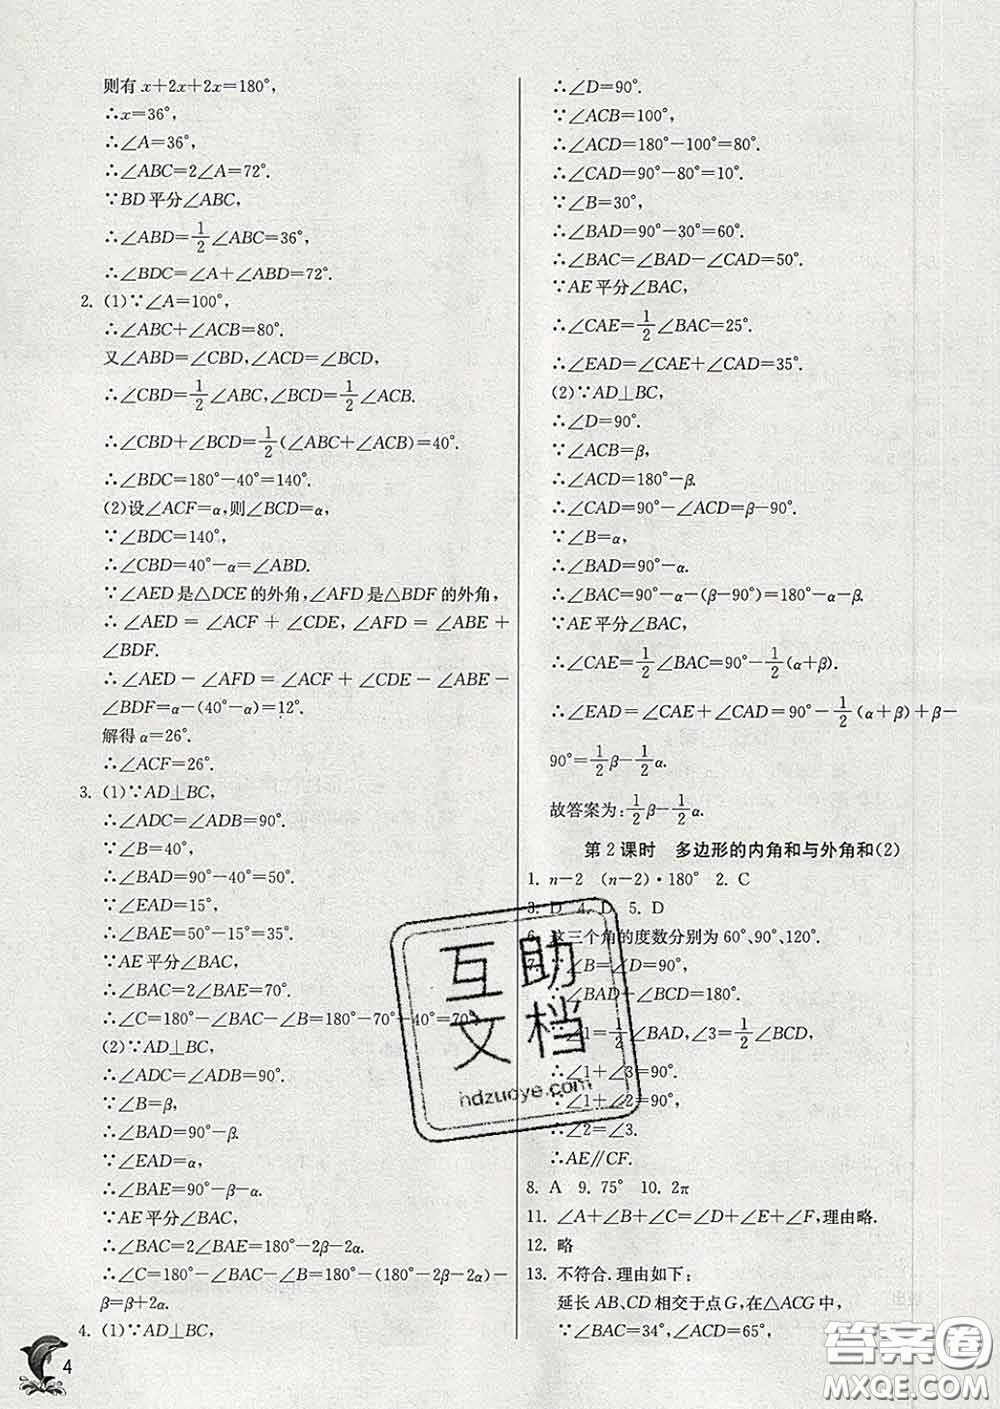 则有 x+2x+2x=180°,
∴x=36°,
∴∠A=36°,
∴∠ABC=2∠A=72°.
∵BD平分∠ABC,
∴∠ABD=1/2∠ABC=36°,
∴∠BDC=∠A+∠ABD=72°.
2. (1)∵∠A=100°,
∴∠ABC+∠ACB=80°.
又∠ABD=∠CBD,∠ACD=∠BCD,
∴∠CBD=1/2∠ABC,∠BCD=1/2∠ACB.
∴∠CBD+∠BCD=1/2(∠ABC+∠ACB)=40°.
∴∠BDC=180°-40°=140°.
(2)设∠ACF=α,则∠BCD=α,
∵∠BDC=140°,
∴∠CBD=40°-α=∠ABD.
∵∠AED是△DCE的外角,∠AFD是△BDF的外角,
∴∠AED=∠ACF+∠CDE,∠AFD=∠ABE+
∠BDF.
∴∠AED-∠AFD=∠ACF+∠CDE-∠ABE-
∠BDF=α-(40°-α)=12°.
解得α=26°.
∴∠ACF=26°.
3. (1)∵AD⊥BC,
∴∠ADC=∠ADB=90°.
∵∠B=40°,
∴∠BAD=90°-40°=50°.
∵∠EAD=15°,
∴∠BAE=50°-15°=35°.
∵AE平分∠BAC,
∴∠BAC=2∠BAE=70°.
∴∠C=180°-∠BAC-∠B=180°-70°-40°=70°.
(2)∵AD⊥BC,
∴∠ADC=∠ADB=90°.
∵∠B=β,
∴∠BAD=90°-β.
∵∠EAD=α,
∴∠BAE=90°-β-α.
∵AE平分∠BAC,
∴∠BAC=2∠BAE=180°-2β-2α.
∴∠C=180°-∠BAC-∠B=180°-(180°-2β-2α)-
β=β+2α.
4. (1)∵AD⊥BC,
4
∴∠D=90°.
∵∠ACB=100°,
∴∠ACD=180°-100°=80°.
∴∠CAD=90°-80°=10°.
∵∠B=30°,
∴∠BAD=90°-30°=60°.
∴∠BAC=∠BAD-∠CAD=50°.
∵AE平分∠BAC,
∴∠CAE=1/2∠BAC=25°.
∴∠EAD=∠CAE+∠CAD=35°.
(2)∵AD⊥BC,
∴∠D=90°.
∵∠ACB=β,
∴∠ACD=180°-β.
∴∠CAD=90°-∠ACD=β-90°.
∵∠B=α,
∴∠BAD=90°-α.
∴∠BAC=90°-α-(β-90°)=180°-α-β.
∵AE平分∠BAC,
∴∠CAE=1/2∠BAC=90°-1/2(α+β).
∴∠EAD=∠CAE+∠CAD=90°-1/2(α+β)+β-
90°=1/2β-1/2α.
故答案为:1/2β-1/2α.
第2课时 多边形的内角和与外角和(2)
1. n-2 (n-2)·180° 2. C
3. D 4. D 5. D
6. 这三个角的度数分别为60°、90°、120°.
7. ∵∠B=∠D=90°,
∴∠BAD+∠BCD=180°.
∵∠1=1/2∠BAD,∠3=1/2∠BCD,
∴∠1+∠3=90°.
∵∠1+∠2=90°,
∴∠2=∠3.
∴AE∥CF.
8. A 9. 75° 10. 2π
11. ∠A+∠B+∠C=∠D+∠E+∠F,理由略.
12. 略
13. 不符合.理由如下:
延长AB、CD相交于点G,在△ACG中,
∵∠BAC=34°,∠ACD=65°,
互助
文档
hdzuoye.com
答案圈
MXQE.COM